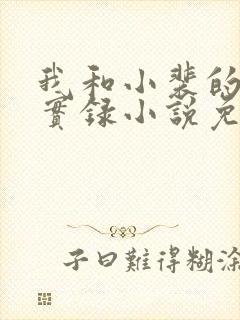 我和小裴的
實錄小說免
子曰難得糊涂